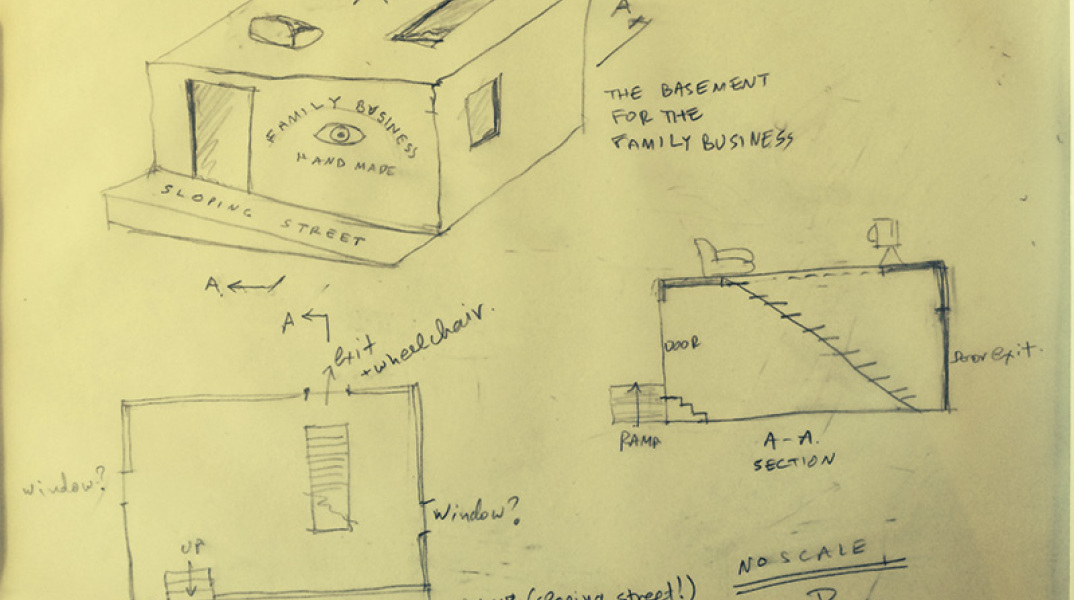 A
FAMILY BUSINESS
HAND MADE
SLOPING STREET
THE BASEMENT
FOR THE
FAMILY BUSINESS
A
A
exit
+wheelchair.
window?
window?
UP
DOOR
DOOR exit.
RAMP
A-A.
SECTION
NO SCALE
street!)